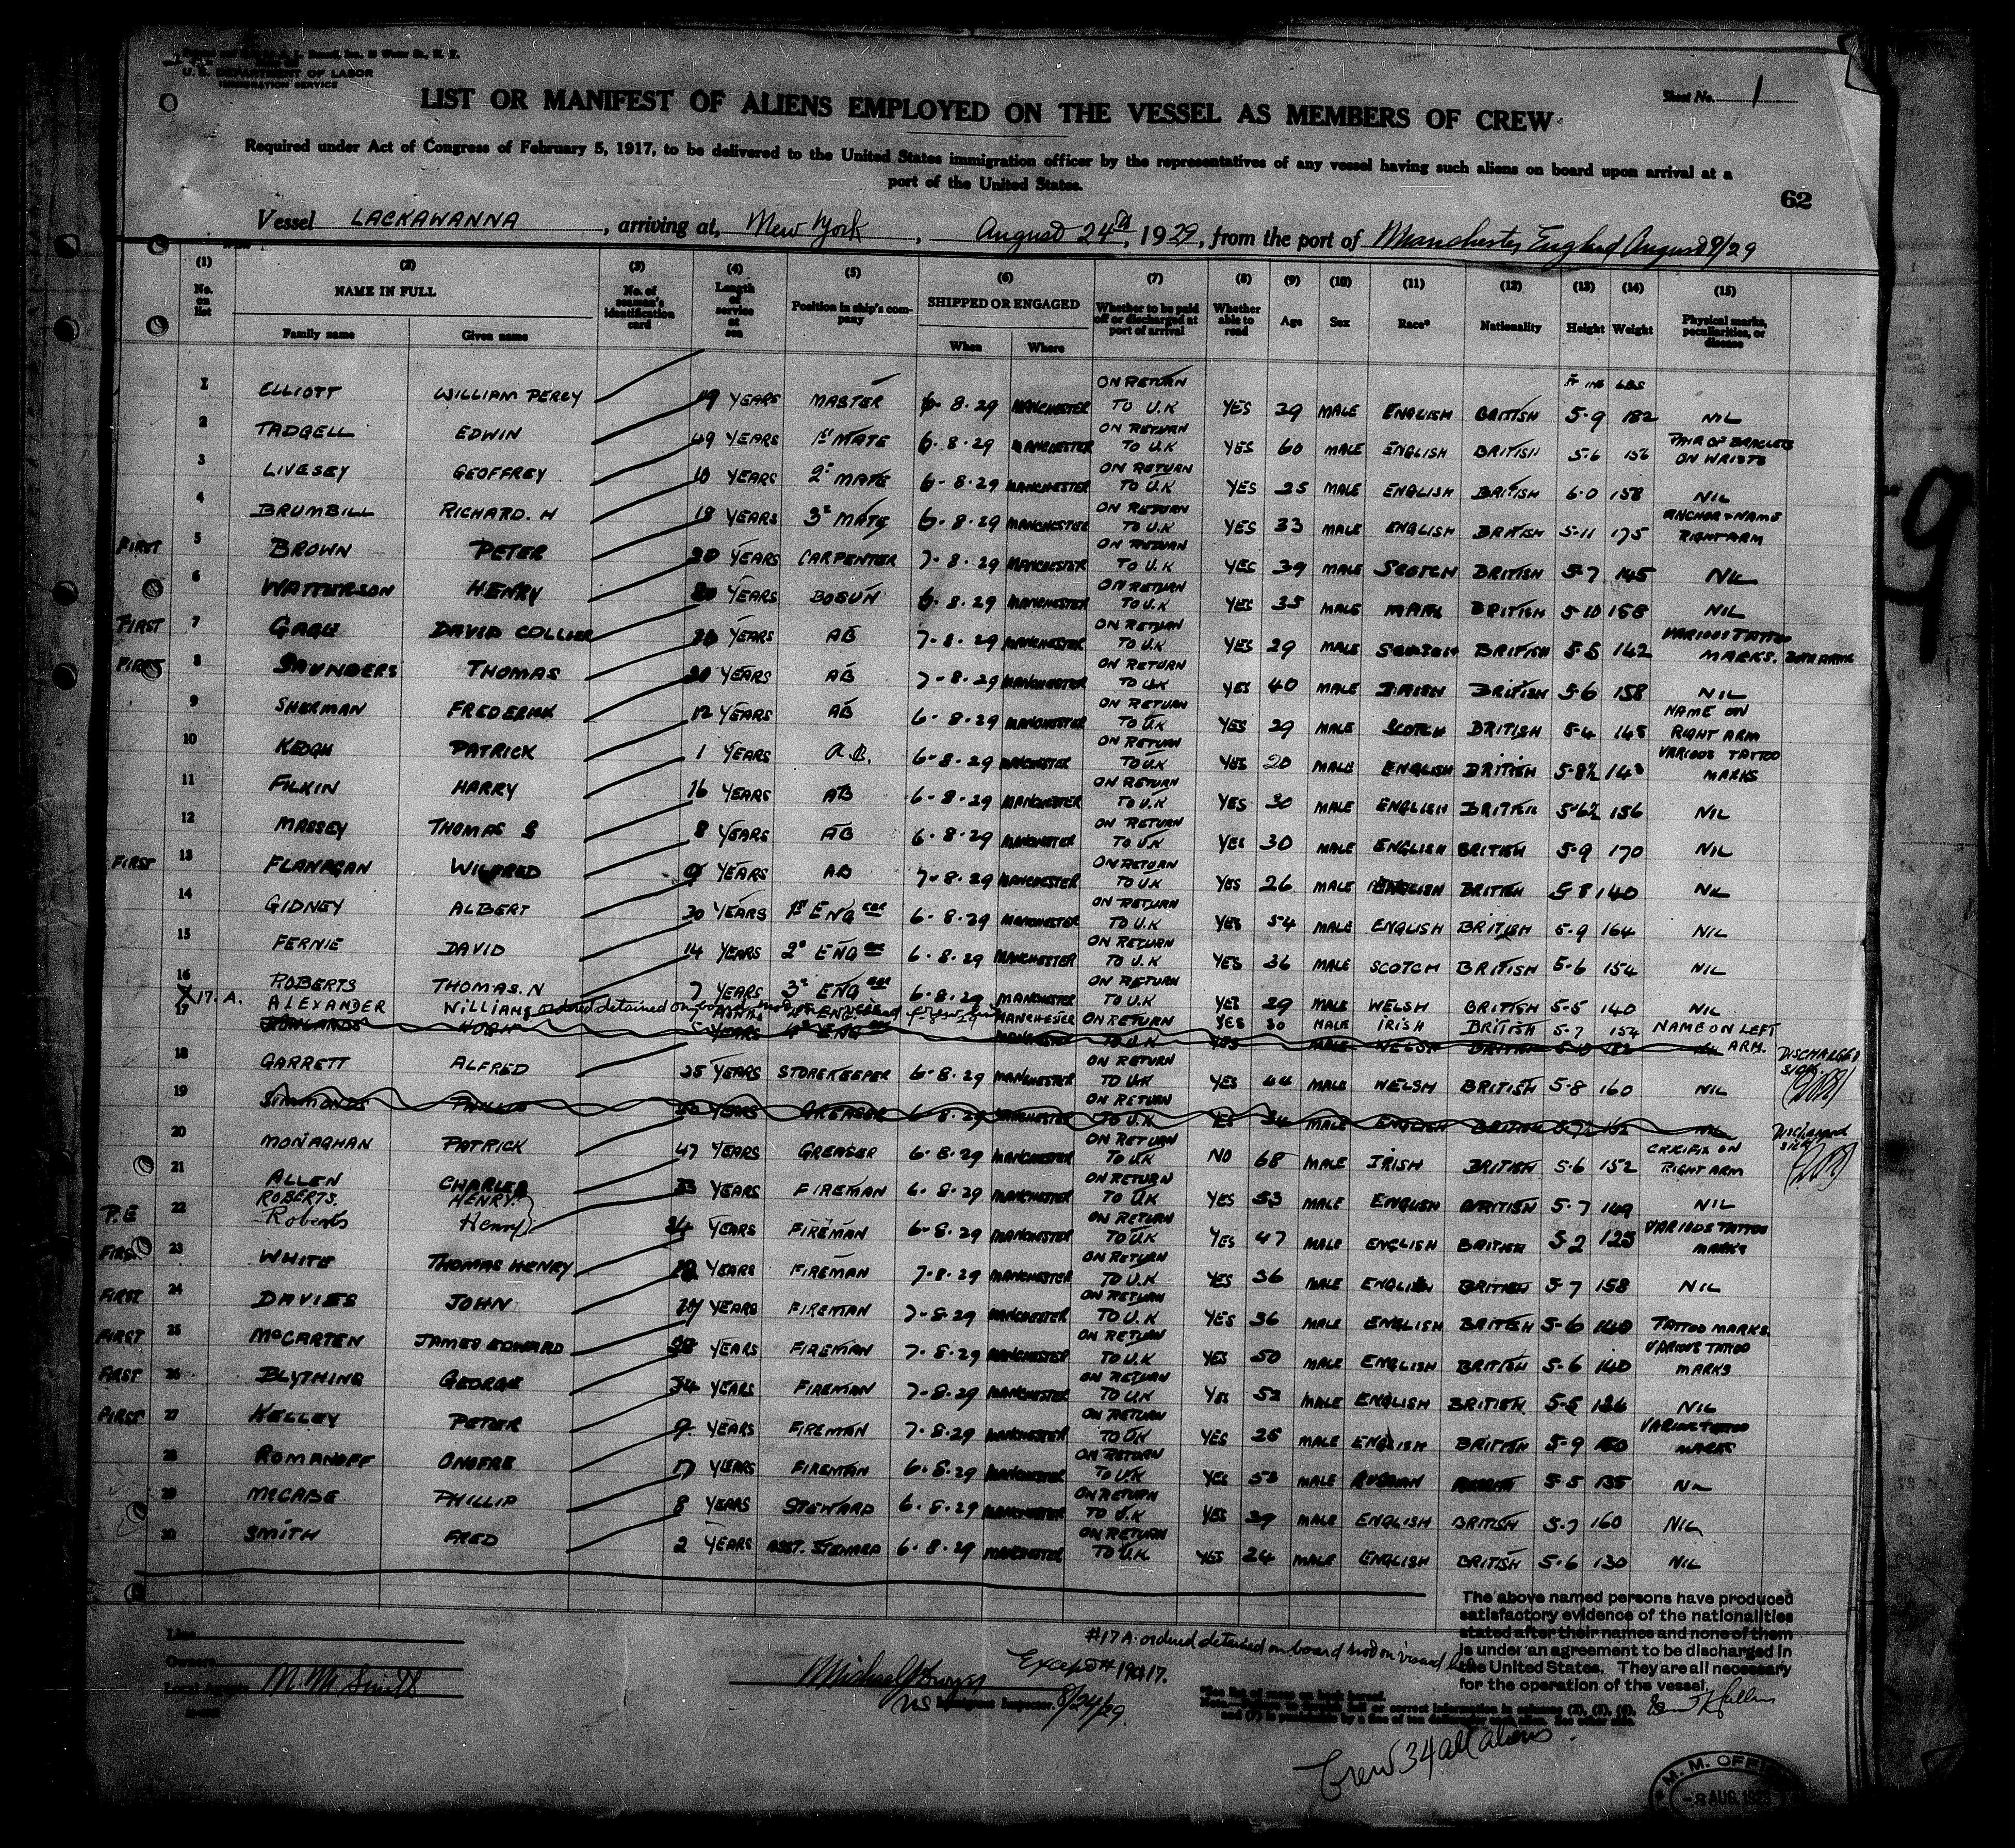 U. S. DEPARTMENT OF LABOR
IMMIGRATION SERVICE
Sheet No. 1
LIST OR MANIFEST OF ALIENS EMPLOYED ON THE VESSEL AS MEMBERS OF CREW
Required under Act of Congress of February 5, 1917, to be delivered to the United States immigration officer by the representatives of any vessel having such aliens on board upon arrival at a
port of the United States.
62
Vessel LACKAWANNA, arriving at, New York, August 24th, 1929, from the port of Manchester, England August 9/29
(1) (2) (3) (4) (5) (6) (7) (8) (9) (10) (11) (12) (13) (14) (15)
No. on list NAME IN FULL Family name Given name No. of seaman's identification card Length of service at sea Position in ship's company SHIPPED OR ENGAGED When Where Whether to be paid off or discharged at port of arrival Whether able to read Age Sex Race* Nationality Height Weight Physical marks, peculiarities, or disease
Ft ins LBS
1 ELLIOTT WILLIAM PERCY 19 YEARS MASTER 6-8-29 MANCHESTER ON RETURN TO U.K YES 39 MALE ENGLISH BRITISH 5-9 182 NIL
2 TADGELL EDWIN 49 YEARS 1st MATE 6-8-29 MANCHESTER ON RETURN TO U.K YES 60 MALE ENGLISH BRITISH 5-6 156 PAIR OF BRACLETS ON WRISTS
3 LIVESEY GEOFFREY 10 YEARS 2d MATE 6-8-29 MANCHESTER ON RETURN TO U.K YES 25 MALE ENGLISH BRITISH 6-0 158 NIL
4 BRUMBILL RICHARD. H 18 YEARS 3d MATE 6-8-29 MANCHESTER ON RETURN TO U.K YES 33 MALE ENGLISH BRITISH 5-11 175 ANCHOR + NAME RIGHT ARM
FIRST 5 BROWN PETER 20 YEARS CARPENTER 7-8-29 MANCHESTER ON RETURN TO U.K YES 39 MALE SCOTCH BRITISH 5-7 145 NIL
6 WATTERSON HENRY 20 YEARS BOSUN 6-8-29 MANCHESTER ON RETURN TO U.K YES 35 MALE BRITISH 5-10 168 NIL
FIRST 7 DAVID COLLIER YEARS AB 7-8-29 MANCHESTER ON RETURN TO U.K YES 29 MALE BRITISH 5-5 142 VARIOUS TATTOO MARKS. BOTH ARMS
FIRST 8 SAUNDERS THOMAS 20 YEARS AB 7-8-29 MANCHESTER ON RETURN TO UK YES 40 MALE BRITISH 5-6 158 NIL
9 SHERMAN FREDERICK 12 YEARS AB 6-8-29 MANCHESTER ON RETURN TO U.K YES 29 MALE SCOTCH BRITISH 5-4 148 NAME ON RIGHT ARM
10 KEOGH PATRICK 1 YEARS A.B. 6-8-29 MANCHESTER ON RETURN TO U.K YES 20 MALE ENGLISH BRITISH 5-8½ 143 VARIOUS TATTOO MARKS
11 FILKIN HARRY 16 YEARS AB 6-8-29 MANCHESTER ON RETURN TO U.K YES 30 MALE ENGLISH BRITISH 5-6½ 156 NIL
12 MASSEY THOMAS S 8 YEARS AB 6-8-29 MANCHESTER ON RETURN TO U.K YES 30 MALE ENGLISH BRITISH 5-9 170 NIL
FIRST 13 FLANAGAN WILFRED 9 YEARS AB 7-8-29 MANCHESTER ON RETURN TO U.K YES 26 MALE ENGLISH BRITISH 5-8 140 NIL
14 GIDNEY ALBERT 30 YEARS 1st ENG eer 6-8-29 MANCHESTER ON RETURN TO U.K YES 54 MALE ENGLISH BRITISH 5-9 164 NIL
15 FERNIE DAVID 14 YEARS 2d ENG eer 6-8-29 MANCHESTER ON RETURN TO U.K YES 36 MALE SCOTCH BRITISH 5-6 154 NIL
16 ROBERTS THOMAS. N 7 YEARS 3d ENG eer 6-8-29 MANCHESTER ON RETURN TO U.K YES 29 MALE WELSH BRITISH 5-5 140 NIL
X 17. A. ALEXANDER WILLIAM ordered detained on board MANCHESTER ON RETURN YES 30 MALE IRISH BRITISH 5-7 154 NAME ON LEFT ARM.
17 ROWLANDS HUGH YEARS 4th ENG eer MANCHESTER TO U.K YES MALE WELSH BRITISH 5-10 NIL DISCHARGED SICK
18 GARRETT ALFRED 25 YEARS STOREKEEPER 6-8-29 MANCHESTER ON RETURN TO U.K YES 44 MALE WELSH BRITISH 5-8 160 NIL
19 SIMMONDS PHILLIP YEARS GREASER 6-8-29 MANCHESTER ON RETURN TO U.K YES 34 MALE ENGLISH BRITISH NIL DISCHARGED SICK
20 MONAGHAN PATRICK 47 YEARS GREASER 6-8-29 MANCHESTER ON RETURN TO UK NO 68 MALE IRISH BRITISH 5-6 152 CRUIFIX ON RIGHT ARM
21 ALLEN CHARLES 33 YEARS FIREMAN 6-8-29 MANCHESTER ON RETURN TO UK YES 53 MALE ENGLISH BRITISH 5-7 149 NIL
P.E 22 ROBERTS. HENRY. Roberts Henry 24 YEARS FIREMAN 6-8-29 MANCHESTER ON RETURN TO U.K YES 47 MALE ENGLISH BRITISH 5-2 125 VARIOUS TATTOO MARKS
FIRST 23 WHITE THOMAS HENRY YEARS FIREMAN 7-8-29 MANCHESTER ON RETURN TO U.K YES 36 MALE ENGLISH BRITISH 5-7 158 NIL
FIRST 24 DAVIES JOHN YEARS FIREMAN 7-8-29 MANCHESTER ON RETURN TO U.K YES 36 MALE ENGLISH BRITISH 5-6 140 TATTOO MARKS.
FIRST 25 McCARTEN JAMES EDWARD YEARS FIREMAN 7-8-29 MANCHESTER ON RETURN TO U.K YES 50 MALE ENGLISH BRITISH 5-6 140 VARIOUS TATTOO MARKS
FIRST 26 BLYTHING GEORGE 34 YEARS FIREMAN 7-8-29 MANCHESTER ON RETURN TO U.K YES 52 MALE ENGLISH BRITISH 5-5 126 NIL
FIRST 27 KELLEY PETER 9 YEARS FIREMAN 7-8-29 MANCHESTER ON RETURN TO UK YES 25 MALE ENGLISH BRITISH 5-9 VARIOUS TATTOO MARKS
28 ROMANOFF ONOFRE 17 YEARS FIREMAN 6-8-29 MANCHESTER ON RETURN TO U.K YES MALE RUSSIAN 5-5 135 NIL
29 McCABE PHILLIP 8 YEARS STEWARD 6-8-29 MANCHESTER ON RETURN TO U.K YES 39 MALE ENGLISH BRITISH 5-7 160 NIL
30 SMITH FRED 2 YEARS ASST. STEWARD 6-8-29 MANCHESTER ON RETURN TO U.K YES 24 MALE ENGLISH BRITISH 5-6 130 NIL
The above named persons have produced
satisfactory evidence of the nationalities
stated after their names and none of them
is under an agreement to be discharged in
the United States. They are all necessary
for the operation of the vessel.
#17 A ordered detained on board
Line
Owners
Local Agents M. M. Smith
Except # 19 & 17.
US Immigrant Inspector. 8/24/29.
*See list of races on back hereof.
Crew 34 all aliens.
M. M. OFFI
-8 AUG. 1929
9